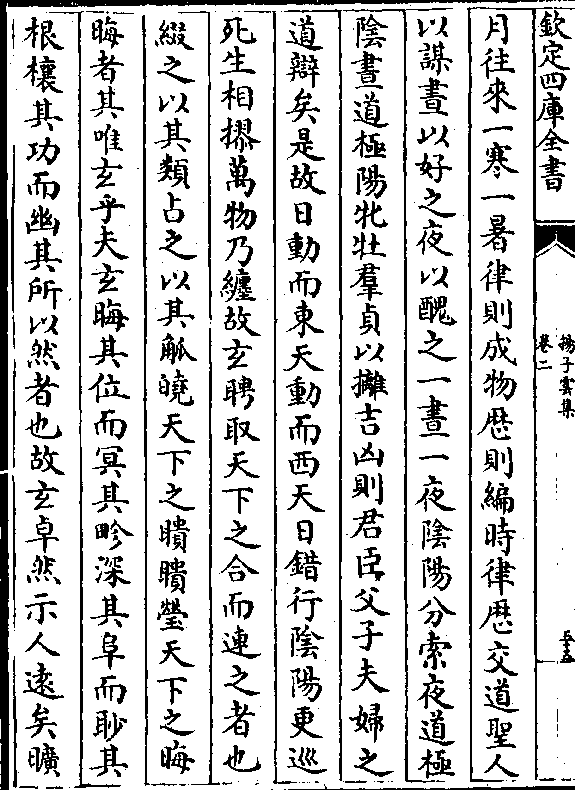 欽定四庫全書
揚子雲集
卷二
月往來一寒一暑律則成物歴則編時律歴交道聖人
以謀晝以好之夜以醜之一晝一夜陰陽分索夜道極
陰晝道極陽牝牡羣貞以攡吉凶則君臣父子夫婦之
道辯矣是故日動而東天動而西天日錯行陰陽更巡
死生相摎萬物乃纏故玄聘取天下之合而連之者也
綴之以其類占之以其觚曉天下之瞶瞶瑩天下之晦
晦者其唯玄乎夫玄晦其位而冥其畛深其阜而眇其
根欀其功而幽其所以然者也故玄卓然示人逺矣曠